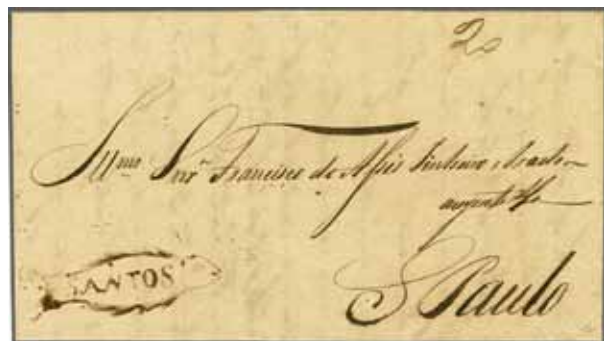 20
Illmo Snr. Francisco de Assis Pinheiro e Prado
SANTOS
S Paulo